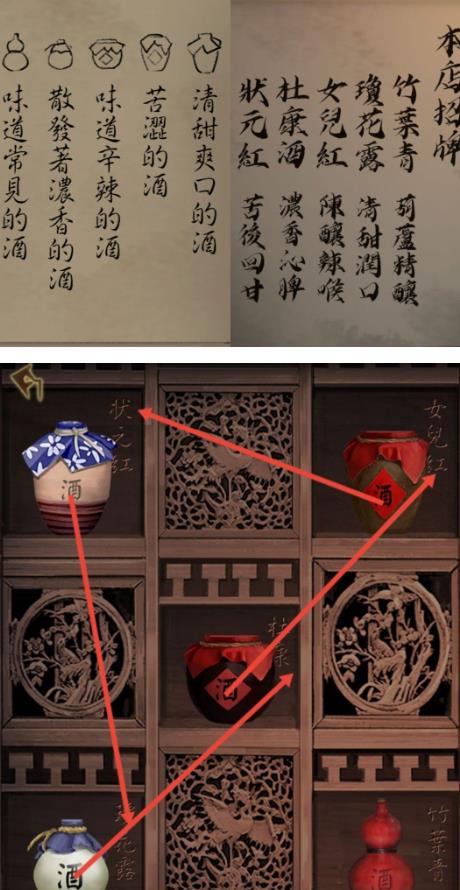 清甜爽口的酒
苦澀的酒
味道辛辣的酒
散發著濃香的酒
味道常見的酒
本店招牌
竹葉青 葫蘆精釀
瓊花露 清甜潤口
女兒紅 陳釀辣喉
杜康酒 濃香沁脾
狀元紅 苦後回甘
狀元紅
酒
女兒紅
酒
杜康
酒
瓊花露
酒
竹葉青
酒